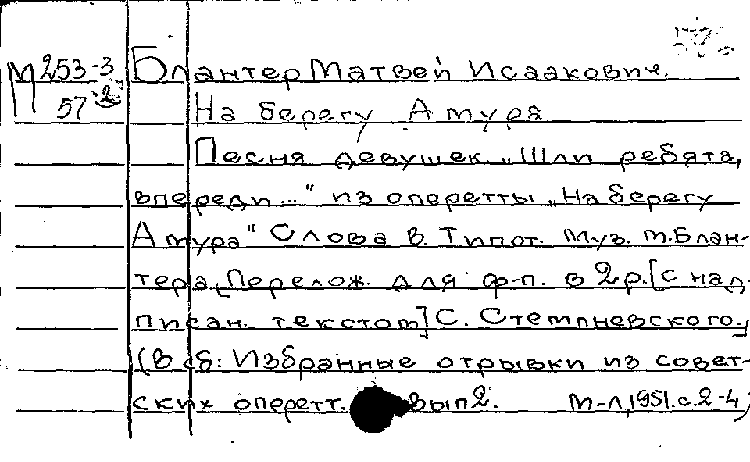 М 253-3 Блантер Матвей Исаакович.
57 2 На берегу Амура
Песня девушек „Шли ребята,
впереди..." из оперетты „На берегу
Амура" Слова В. Типот. Муз. М. Блан-
тера, Перелож. для ф-п. в 2 р. [с над-
писан. текстом] С. Стемпневского.,
(В сб: Избранные отрывки из совет-
ских оперетт. вып 2. М-Л, 1951. с. 2-4)